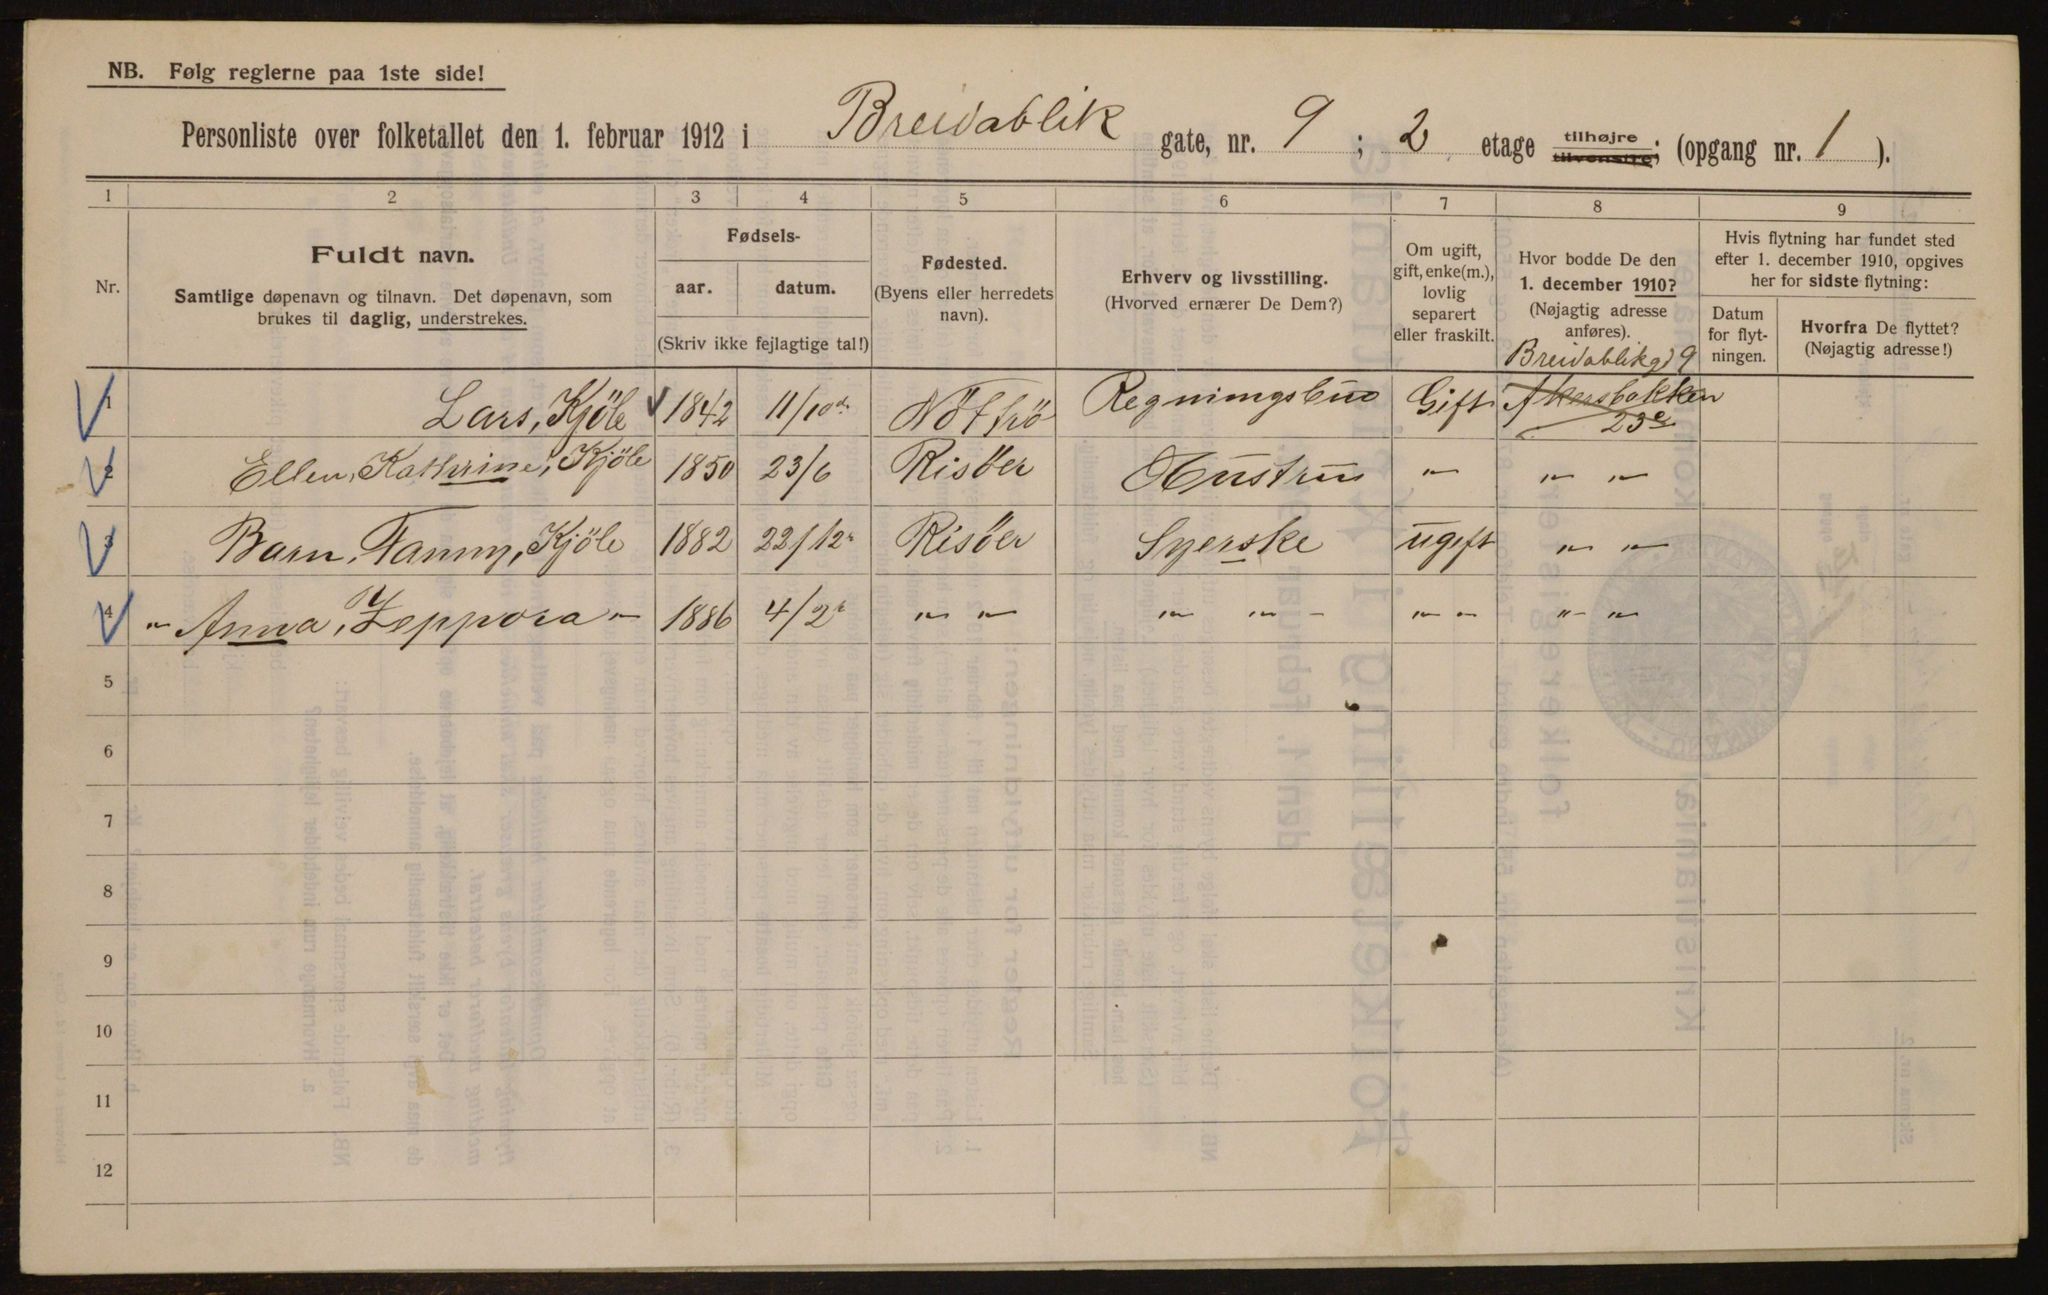 NB. Følg reglerne paa 1ste side!
Personliste over folketallet den 1. februar 1912 i Breidablik gate, nr. 9 ; 2 etage tilhøjre tilvenstre; (opgang nr. 1 ).
1 2 3 4 5 6 7 8 9
Nr.
Fuldt navn.
Samtlige døpenavn og tilnavn. Det døpenavn, som
brukes til daglig, understrekes.
Fødsels-
aar. datum.
(Skriv ikke fejlagtige tal!)
Fødested.
(Byens eller herredets
navn).
Erhverv og livsstilling.
(Hvorved ernærer De Dem?)
Om ugift,
gift, enke(m.),
lovlig
separert
eller fraskilt.
Hvor bodde De den
1. december 1910?
(Nøjagtig adresse
anføres).
Hvis flytning har fundet sted
efter 1. december 1910, opgives
her for sidste flytning:
Datum
for flyt-
ningen.
Hvorfra De flyttet?
(Nøjagtig adresse!)
Breidablikg 9
1 Lars, Kjöle 1842 11/10 Nöttrö Regningsbud Gift Akersbakken
23
2 Ellen, Kathrine, Kjöle 1850 23/6 Risöer Hustru " " "
3 Barn, Fanny, Kjöle 1882 22/12 Risöer Syerske ugift " "
4 " Anna, Zeppora " 1886 4/2 " " " " " " " " "
5
6
7
8
9
10
11
12